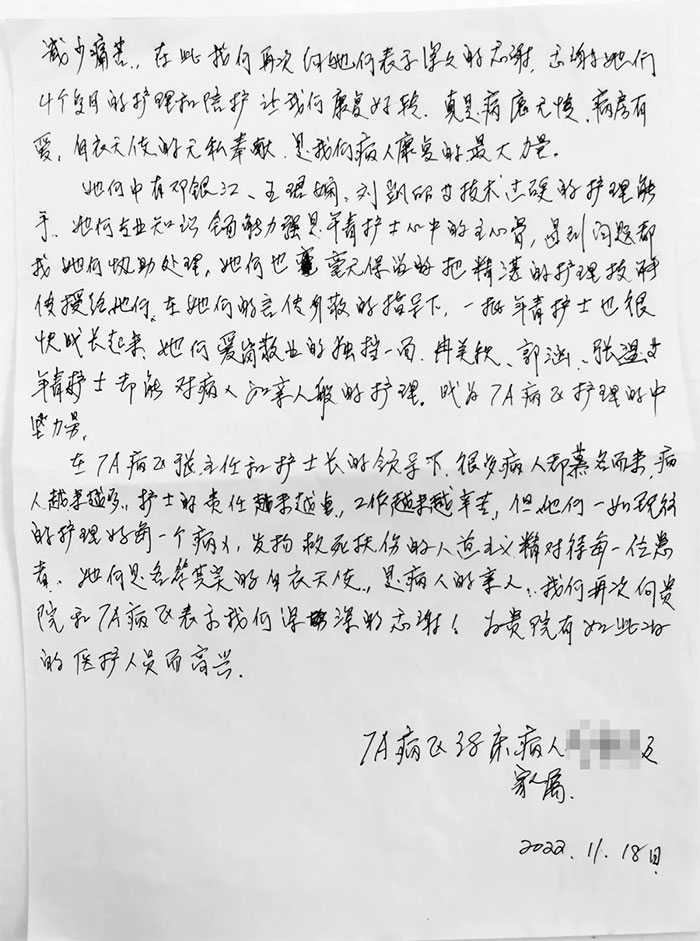 减少痛苦,在此我们再次向她们表示深久的感谢,感谢她们
4个多月的护理和陪护让我们康复好转.真是病魔无情、病房有
爱,白衣天使的无私奉献.是我们病人康复的最大力量。
她们中有邓银江、王珺娴、刘凯丽技术过硬的护理能
手、她们专业知识全面能力强是年青护士心中的主心骨,遇到问题都
找她们协助处理,她们也毫无保留的把精湛的护理技术
传授给她们、在她们的言传身教的指导下,一批年青护士也很
快成长起来、她们爱岗敬业的独挡一面.冉美钦、郭涵、张温
年青护士却能对病人如亲人般的护理。成为7A病区护理的中
坚力量。
在7A病区张主任和护士长的领导下、很多病人都慕名而来,病
人越来越多,护士的责任越来越重,工作越来越辛苦,但她们一如既往
的护理好每一个病人,发扬救死扶伤的人道主义精对待每一位患
者、她们是名符其实的白衣天使,是病人的亲人,我们再次向贵
院和7A病区表示我们深深的感谢!为贵院有如此好
的医护人员而高兴.
7A病区38床病人 及
家人属.
2022.11.18日